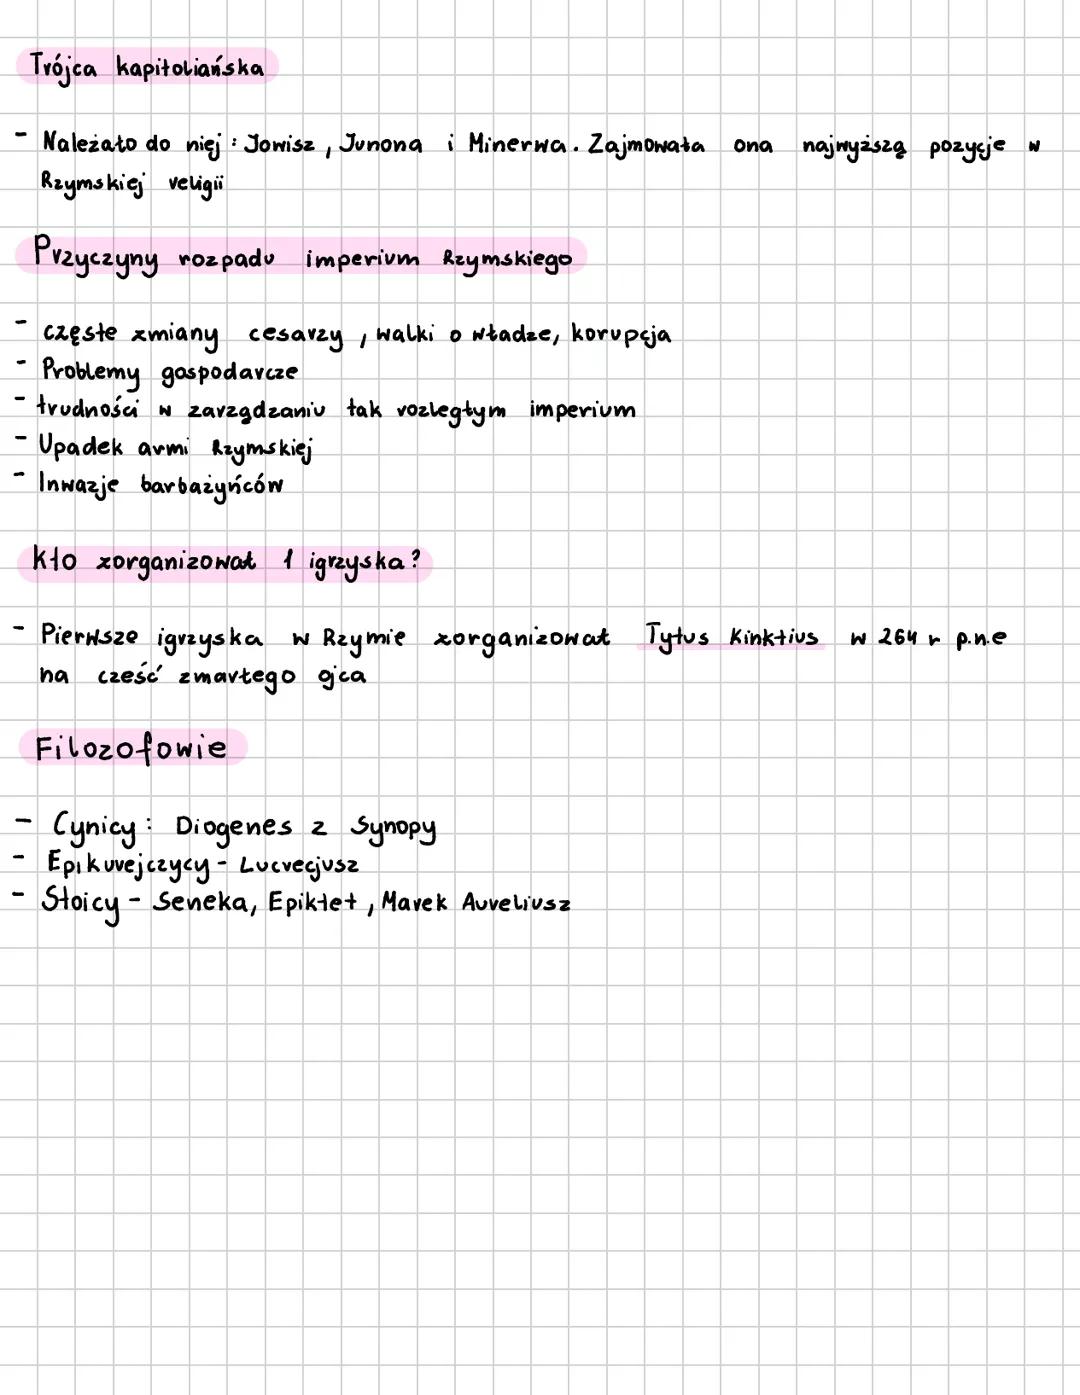 Trójca kapitoliańska
- Należało do niej : Jowisz, Junona i Minerwa. Zajmowała ona najwyższą pozycje w
Rzymskiej religii
Przyczyny rozpadu imperium Rzymskiego
- częste zmiany cesarzy, walki o władze, korupcja
- Problemy gospodarcze
- trudności w zarządzaniu tak rozległym imperium
- Upadek armi Rzymskiej
- Inwazje barbażyńców
Kto zorganizował 1 igrzyska?
- Pierwsze igrzyska w Rzymie zorganizował Tytus Kinktius w 264 r p.n.e
na cześć zmarłego ojca
Filozofowie
- Cynicy : Diogenes z Synopy
- Epikurejczycy - Lucrecjusz
- Stoicy - Seneka, Epiktet, Marek Aureliusz